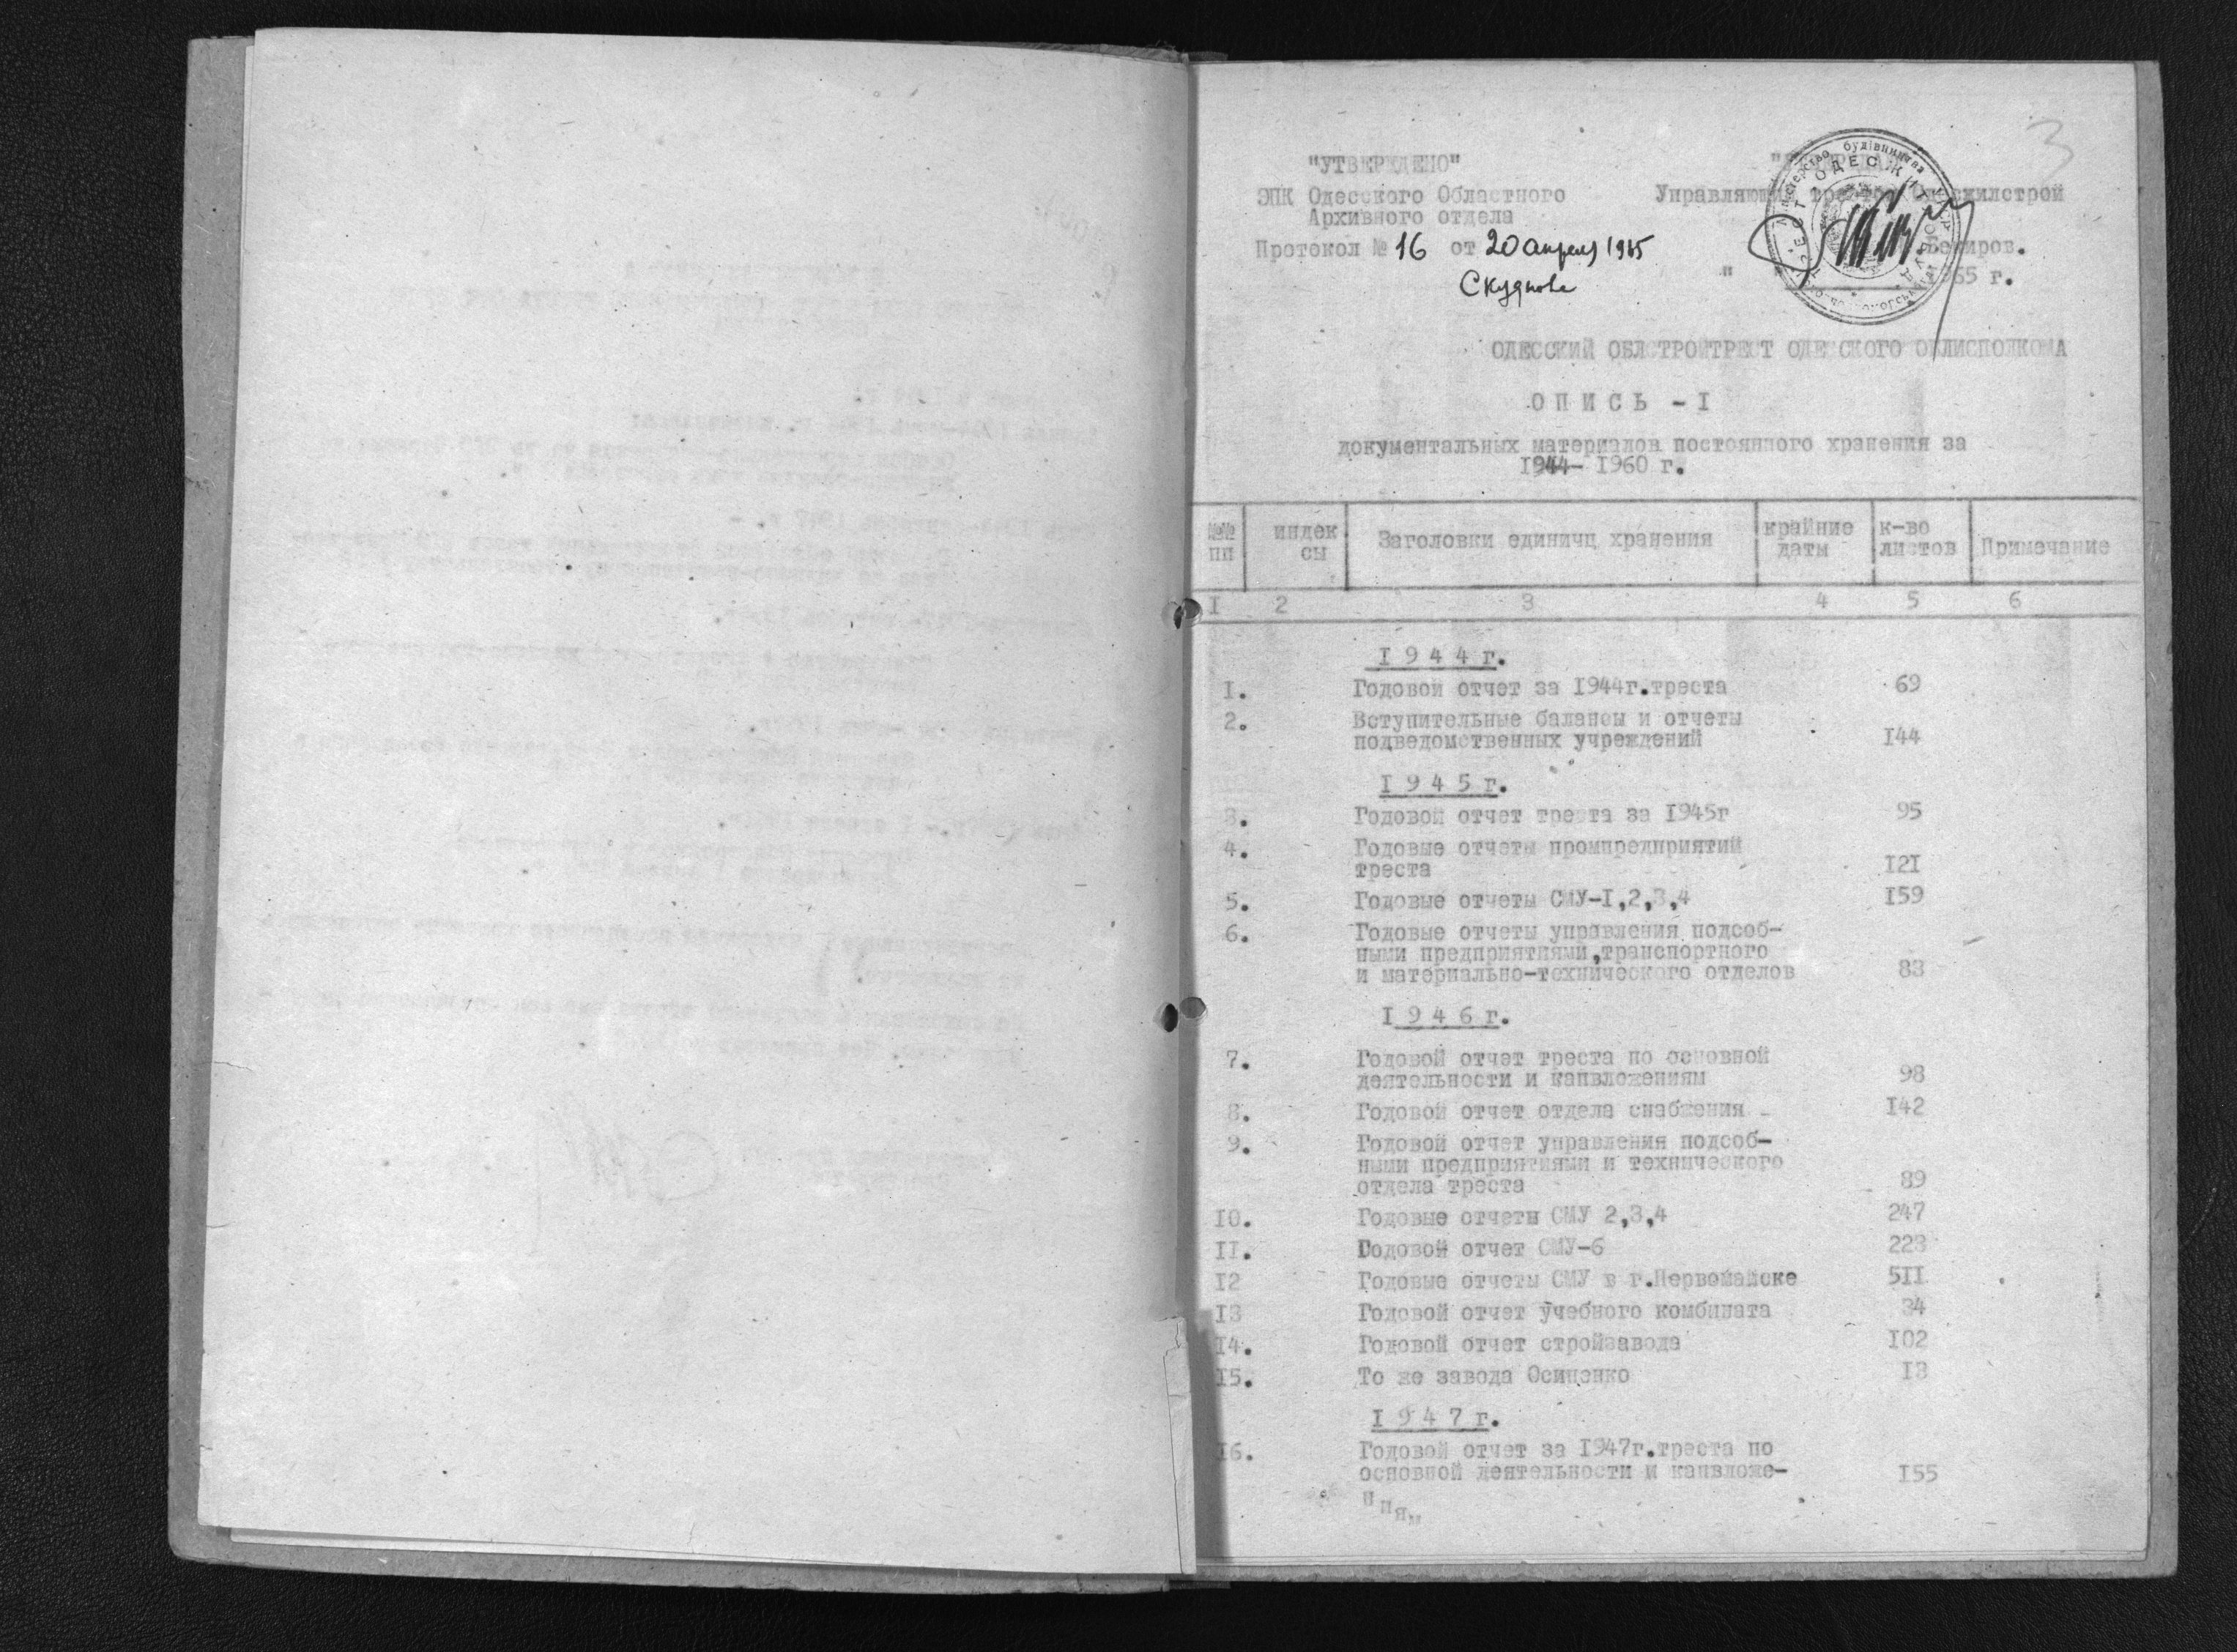 3
"УТВЕРЖДЕНО"
ЭПК Одесского Областного
Архивного отдела
Протокол № 16 от 20 апреля 1965
Управляющий трестом Одесжилстрой
1965 г.
ОДЕССКИЙ ОБЛСТРОЙТРЕСТ ОДЕССКОГО ОБЛИСПОЛКОМА
ОПИСЬ - I
документальных материалов постоянного хранения за
1944- 1960 г.
№№ пп | индексы | Заголовки единиц хранения | крайние даты | к-во листов | Примечание
I 2 3 4 5 6
I944г.
I. Годовой отчет за I944г.треста 69
2. Вступительные балансы и отчеты
подведомственных учреждений I44
I945г.
3. Годовой отчет треста за I945г 95
4. Годовые отчеты промпредприятий
треста I2I
5. Годовые отчеты СМУ-I,2,3,4 I59
6. Годовые отчеты управления подсоб-
ными предприятиями,транспортного
и материально-технического отделов 83
I946г.
7. Годовой отчет треста по основной
деятельности и капвложениям 98
8. Годовой отчет отдела снабжения I42
9. Годовой отчет управления подсоб-
ными предприятиями и технического
отдела треста 89
I0. Годовые отчеты СМУ 2,3,4 247
II. Годовой отчет СМУ-6 223
I2 Годовые отчеты СМУ в г.Первомайске 5II
I3 Годовой отчет учебного комбината 34
I4. Годовой отчет стройзавода I02
I5. То же завода Осипенко I3
I947г.
I6. Годовой отчет за I947г.треста по
основной деятельности и капвложе- I55
ниям